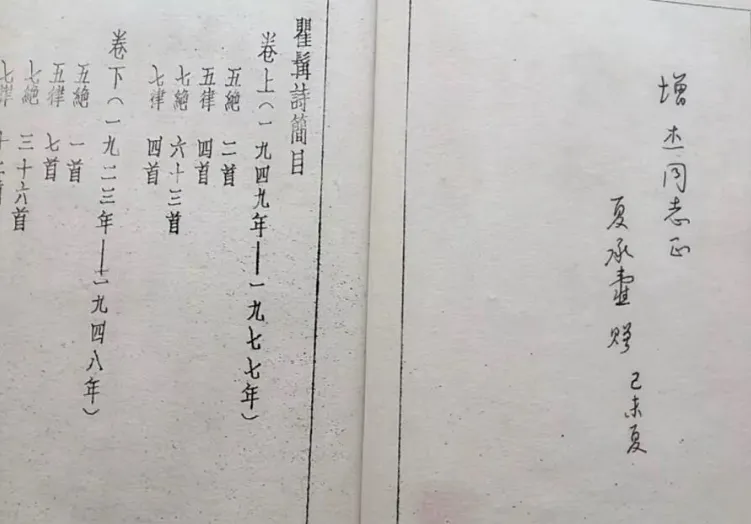 增杰同志正
夏承焘赠
己未夏
瞿髯詩簡目
卷上(一九四九年—一九七七年)
五絕 二首
五律 四首
七絕 六十三首
七律 四首
卷下(一九二三年—一九四八年)
五絕 一首
五律 七首
七絕 三十六首
七律